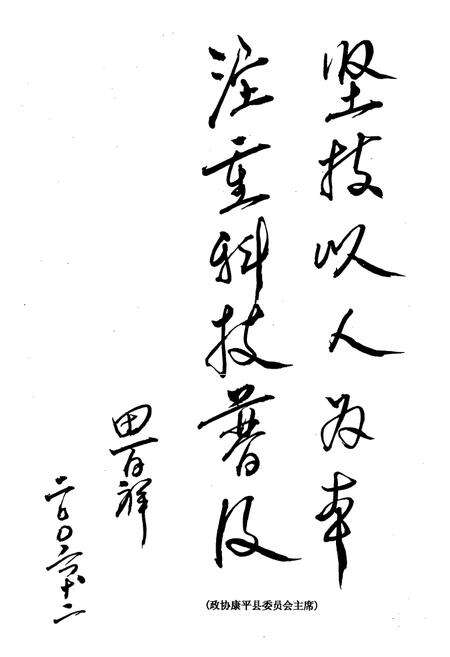 坚持以人为本
注重科技普及
田百祥
二〇〇六.十二
(政协康平县委员会主席)